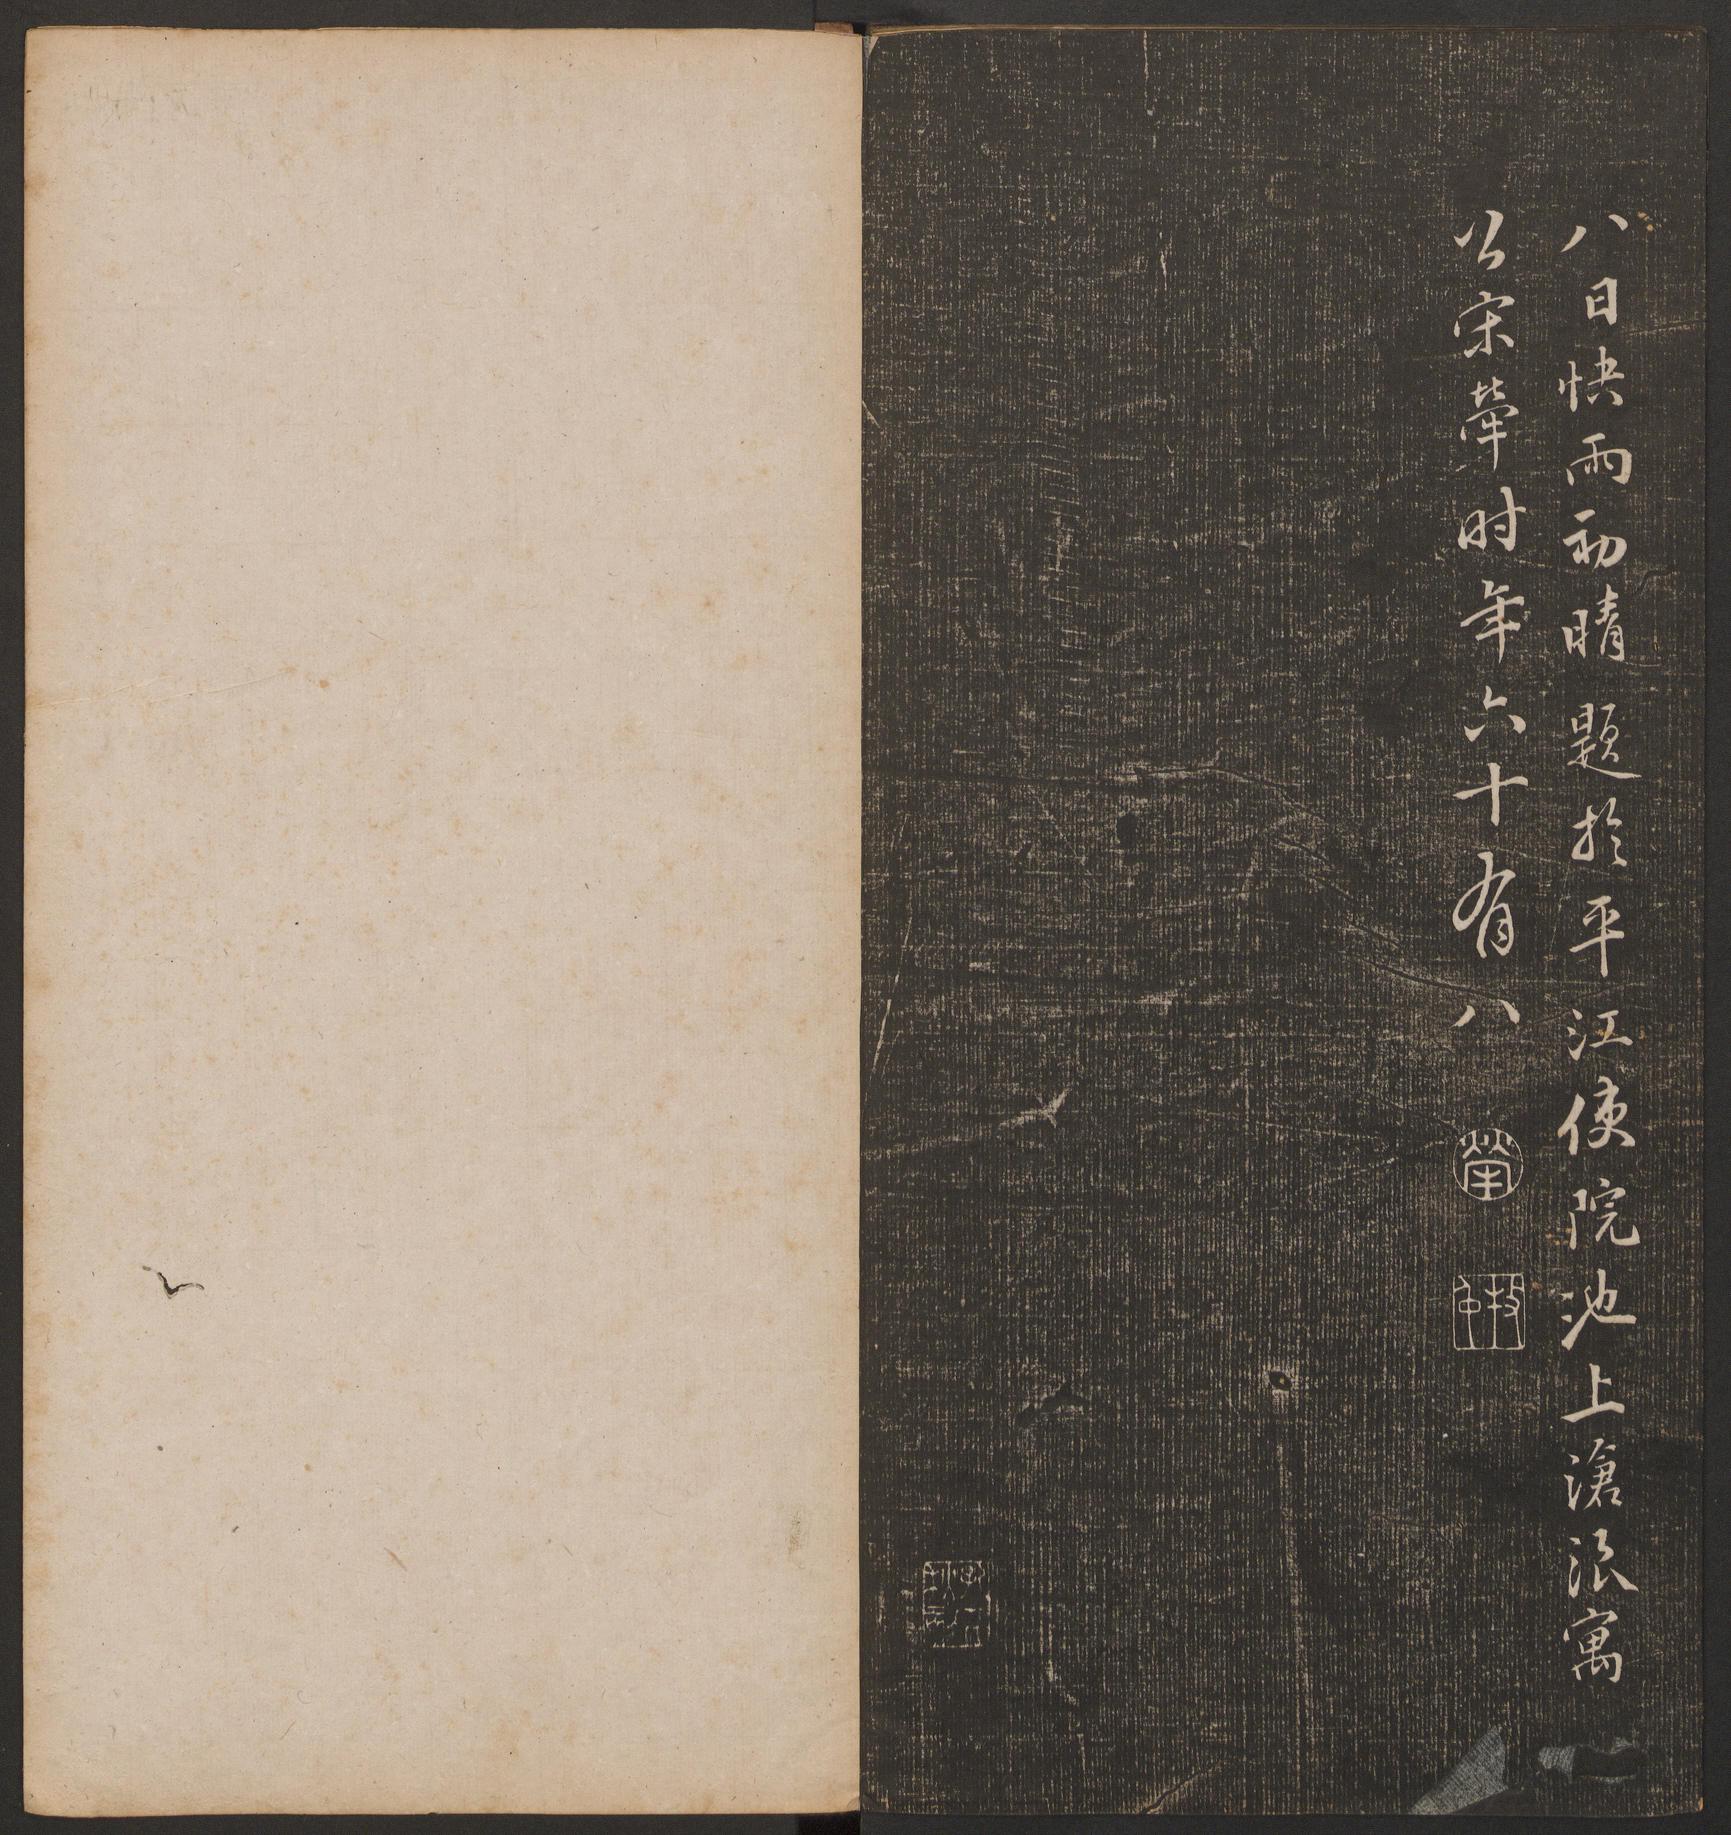 八日快雨初晴題於平江使院池上滄浪寓
公宋犖时年六十有八
犖
牧仲